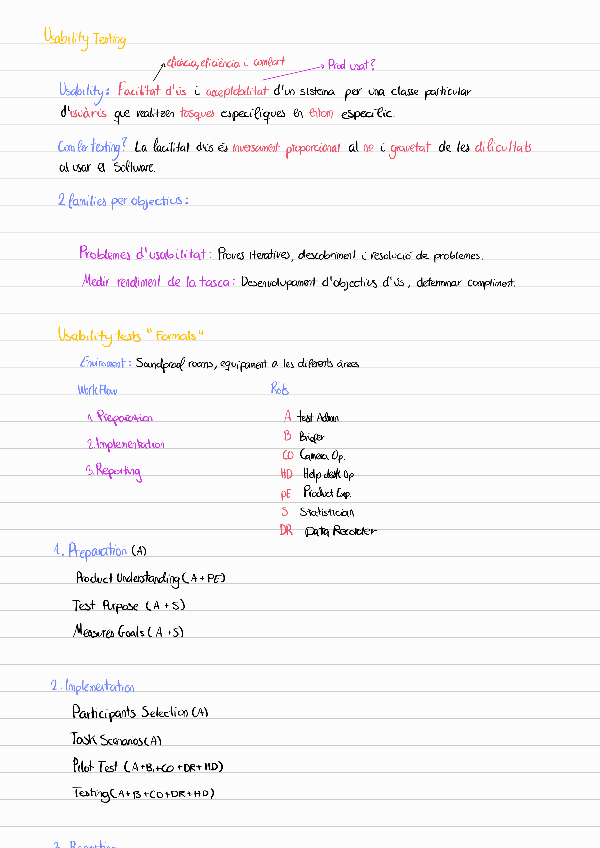 Usability Testing
eficàcia, eficiència i comfort
Prod usat?
Usability: Facilitat d'ús i acceptabilitat d'un sistema per una classe particular
d'usuàris que realitzen tasques específiques en entorn específic.
Com fer testing? La facilitat d'ús és inversament proporcional al nº i gravetat de les dificultats
al usar el Software.
2 famílies per objectius:
Problemes d'usabilitat: Proves iteratives, descobriment i resolució de problemes.
Medir rendiment de la tasca: Desenvolupament d'objectius d'ús, determinar compliment.
Usability tests "Formals"
Enviroment: Soundproof rooms, equipament a les diferents àrees
Work Flow
Rols
1. Preparation
2. Implementation
3. Reporting
A Test Admin
B Briefer
CO Camera Op.
HD Help desk Op
PE Product Exp.
S Statistician
DR Data Recorder
1. Preparation (A)
Product Understanding (A + PE)
Test Purpose (A + S)
Measures Goals (A + S)
2. Implementation
Participants Selection (A)
Task Scenarios (A)
Pilot Test (A+B+CO+DR+HD)
Testing (A+B+CO+DR+HD)
3. Reporting